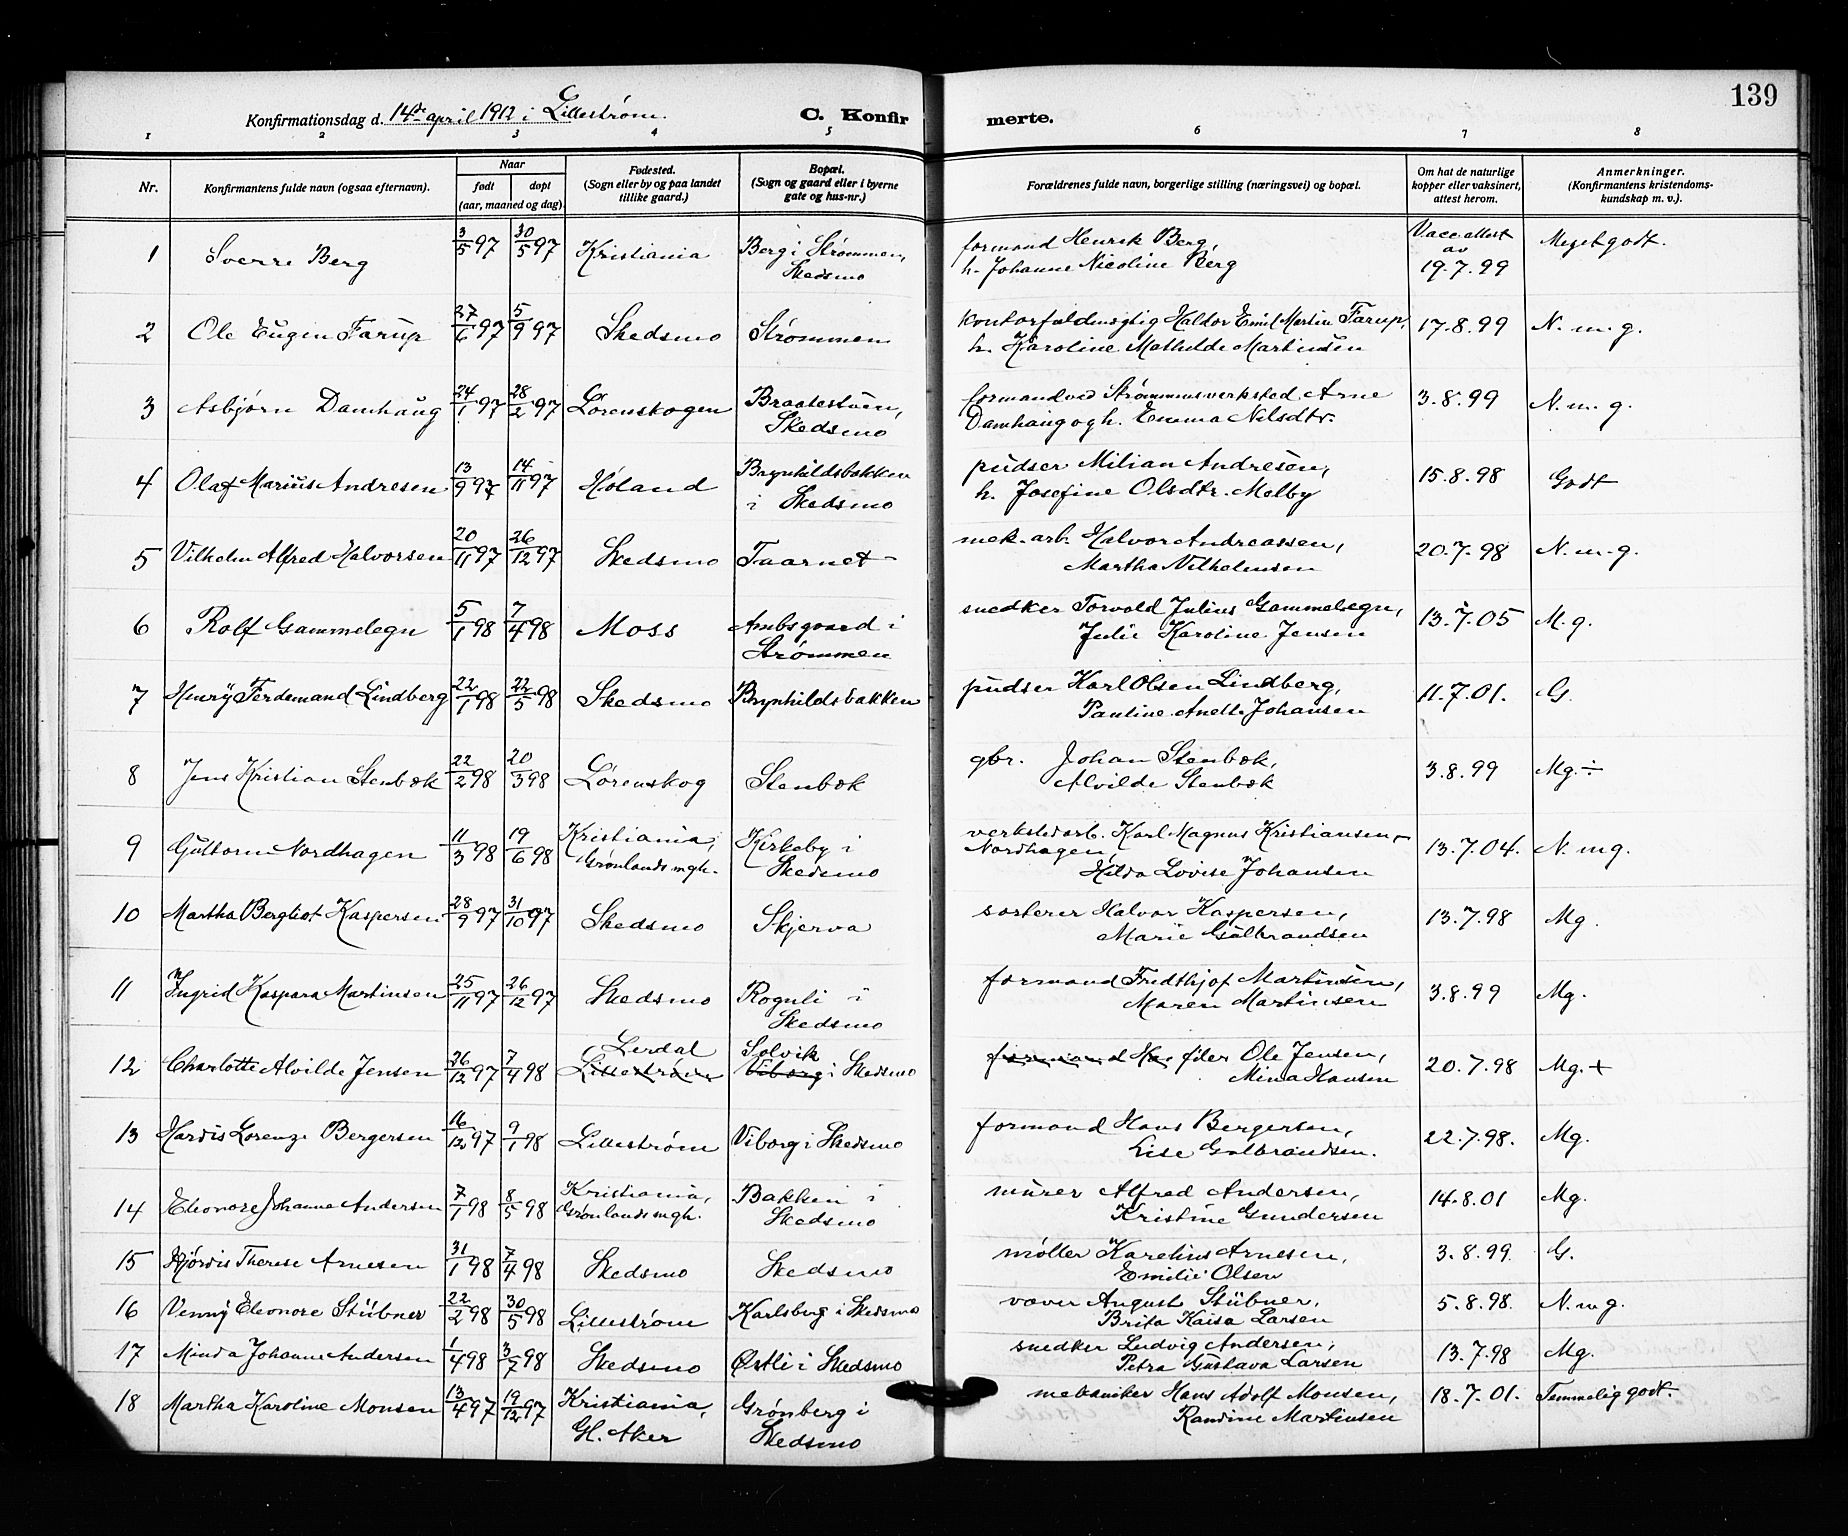 139
Konfirmationsdag d. 14de april 1912 i Lillestrøm. C. Konfirmerte.
1 2 3 4 5 6 7 8
Nr. Konfirmantens fulde navn (ogsaa efternavn). Naar født døpt (aar, maaned og dag). Fødested. (Sogn eller by og paa landet tillike gaard.) Bopæl. (Sogn og gaard eller i byerne gate og hus-nr.) Forældrenes fulde navn, borgerlige stilling (næringsvei) og bopæl. Om hat de naturlige kopper eller vaksinert, attest herom. Anmerkninger. (Konfirmantens kristendoms-kundskap m. v.).
1 Sverre Berg 3/5 97 30/5 97 Kristiania Berg i Strømmen, Skedsmo formand Henrik Berg, h. Johanne Nicoline Berg Vacc.attest av 19.7.99 Meget godt.
2 Ole Eugen Farup 27/6 97 5/9 97 Skedsmo Strømmen kontorfuldmegtig Haldor Emil Martin Farup, h. Karoline Mathilde Martinsen 17.8.99 N. m. g.
3 Asbjørn Damhaug 24/1 97 28/2 97 Lørenskogen Braatestuen, Skedsmo formand ved Strømmens verksted Arne Damhaug og h. Emma Nilsdtr. 3.8.99 N. m. g.
4 Olaf Marius Andresen 13/9 97 14/11 97 Høland Brynhildsbakken i Skedsmo pudser Milian Andresen, h. Josefine Olsdtr. Melby 15.8.98 Godt
5 Vilhelm Alfred Halvorsen 20/11 97 26/12 97 Skedsmo Taarnet mek. arb. Halvor Andreassen, Martha Vilhelmsen 20.7.98 N. m. g.
6 Rolf Gammelegn 5/1 98 7/4 98 Moss Ambsgaard i Strømmen snedker Torvald Julius Gammelegn, Julie Karoline Jensen 13.7.05 M. g.
7 Henry Ferdemand Lindberg 22/1 98 22/5 98 Skedsmo Brynhildsbakken pudser Karl Olsen Lindberg, Pauline Anette Johansen 11.7.01. G.
8 Jens Kristian Stenbæk 22/2 98 20/3 98 Lørenskog Stenbæk gbr. Johan Stenbæk, Alvilde Stenbæk 3.8.99 Mg. ÷
9 Guttorm Nordhagen 11/3 98 19/6 98 Kristiania, Grønlands mgh. Kirkeby i Skedsmo verkstedarb. Karl Magnus Kristiansen Nordhagen, Hilda Lovise Johansen 13.7.04. N. m g.
10 Martha Bergliot Kaspersen 28/9 97 31/10 97 Skedsmo Skjerva sorterer Halvor Kaspersen, Marie Gulbrandsen 13.7.98 Mg.
11 Ingrid Kaspara Martinsen 25/11 97 26/12 97 Skedsmo Rognli i Skedsmo formand Fredthjof Martinsen, Maren Martinsen 3.8.99 Mg.
12 Charlotte Alvilde Jensen 26/12 97 7/4 98 Lerdal Lillestrøm Solvik Viborg i Skedsmo formand Han filer Ole Jensen, Mina Hansen 20.7.98 Mg. +
13 Hardis Lorenze Bergersen 16/12 97 9/1 98 Lillestrøm Viborg i Skedsmo formand Hans Bergersen, Lise Gulbrandsen. 22.7.98. Mg.
14 Eleonore Johanne Andersen 7/1 98 8/5 98 Kristiania, Grønlands mgh. Bakken i Skedsmo murer Alfred Andersen, Kristine Gundersen 14.8.01 Mg.
15 Hjørdis Therese Arnesen 31/1 98 7/4 98 Skedsmo Skedsmo møller Karelius Arnesen, Emilie Olsen 3.8.99. G.
16 Venny Eleonore Stübner 22/2 98 30/5 98 Lillestrøm Karlsberg i Skedsmo væver August Stübner, Brita Kaisa Larsen 5.8.98. N. m g.
17 Minda Johanne Andersen 1/4 98 3/7 98 Skedsmo Østli i Skedsmo snedker Ludvig Andersen, Petra Gustava Larsen 13.7.98 Mg.
18 Martha Karoline Monsen 13/4 97 19/12 97 Kristiania, Gl. Aker Grønberg i Skedsmo mekaniker Hans Adolf Monsen, Randine Martinsen 18.7.01. Temmelig godt.